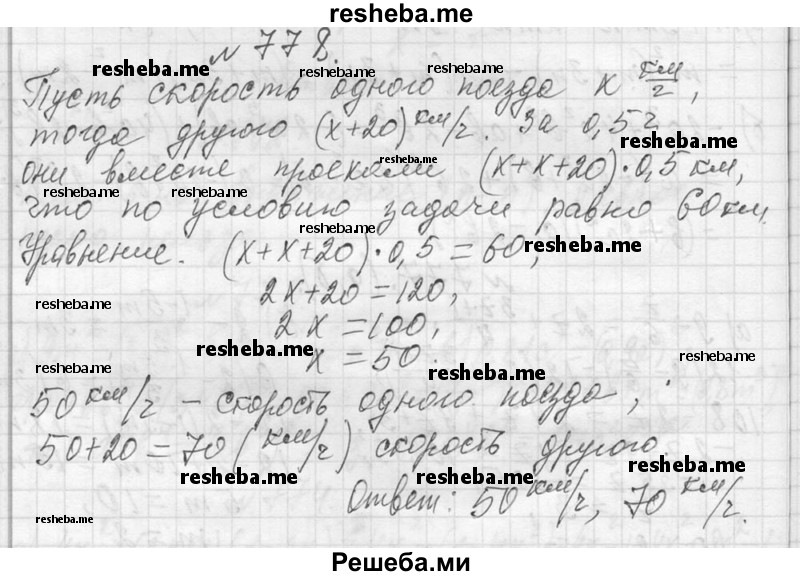 resheba.me
№ 778.
resheba.me resheba.me resheba.me
Пусть скорость одного поезда x км/ч,
тогда другого (x+20) км/ч. За 0,5 ч
resheba.me
они вместе проехали (x+x+20)·0,5 км,
resheba.me resheba.me
что по условию задачи равно 60 км.
resheba.me
Уравнение. (x+x+20)·0,5=60,
resheba.me
2x+20=120,
resheba.me
2x=100,
resheba.me resheba.me
x=50.
resheba.me resheba.me
50 км/ч – скорость одного поезда,
50+20=70 (км/ч) скорость другого
resheba.me resheba.me resheba.me
Ответ: 50 км/ч, 70 км/ч.
resheba.me
Решеба.ми